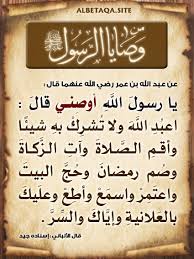 ALBETAQA.SITE
وصايا الرسول ﷺ
عن عبد الله بن عمر رضي الله عنهما قال:
يا رسول الله أوصني قال:
اعبُدِ اللهَ ولا تُشرِكْ بهِ شيئًا
وأقمِ الصَّلاةَ وآتِ الزَّكاةَ
وصُم رمضانَ وحُجَّ البيتَ
واعتَمِرْ واسمَعْ وأطِعْ وعليكَ
بالعلانيةِ وإيَّاكَ والسِّرَّ.
قال الألباني: إسناده جيد